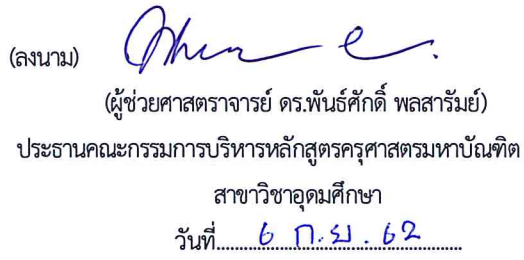 (ลงนาม)
(ผู้ช่วยศาสตราจารย์ ดร.พันธ์ศักดิ์ พลสารัมย์)
ประธานคณะกรรมการบริหารหลักสูตรครุศาสตรมหาบัณฑิต
สาขาวิชาอุดมศึกษา
วันที่.....6 ก.ย. 62.....